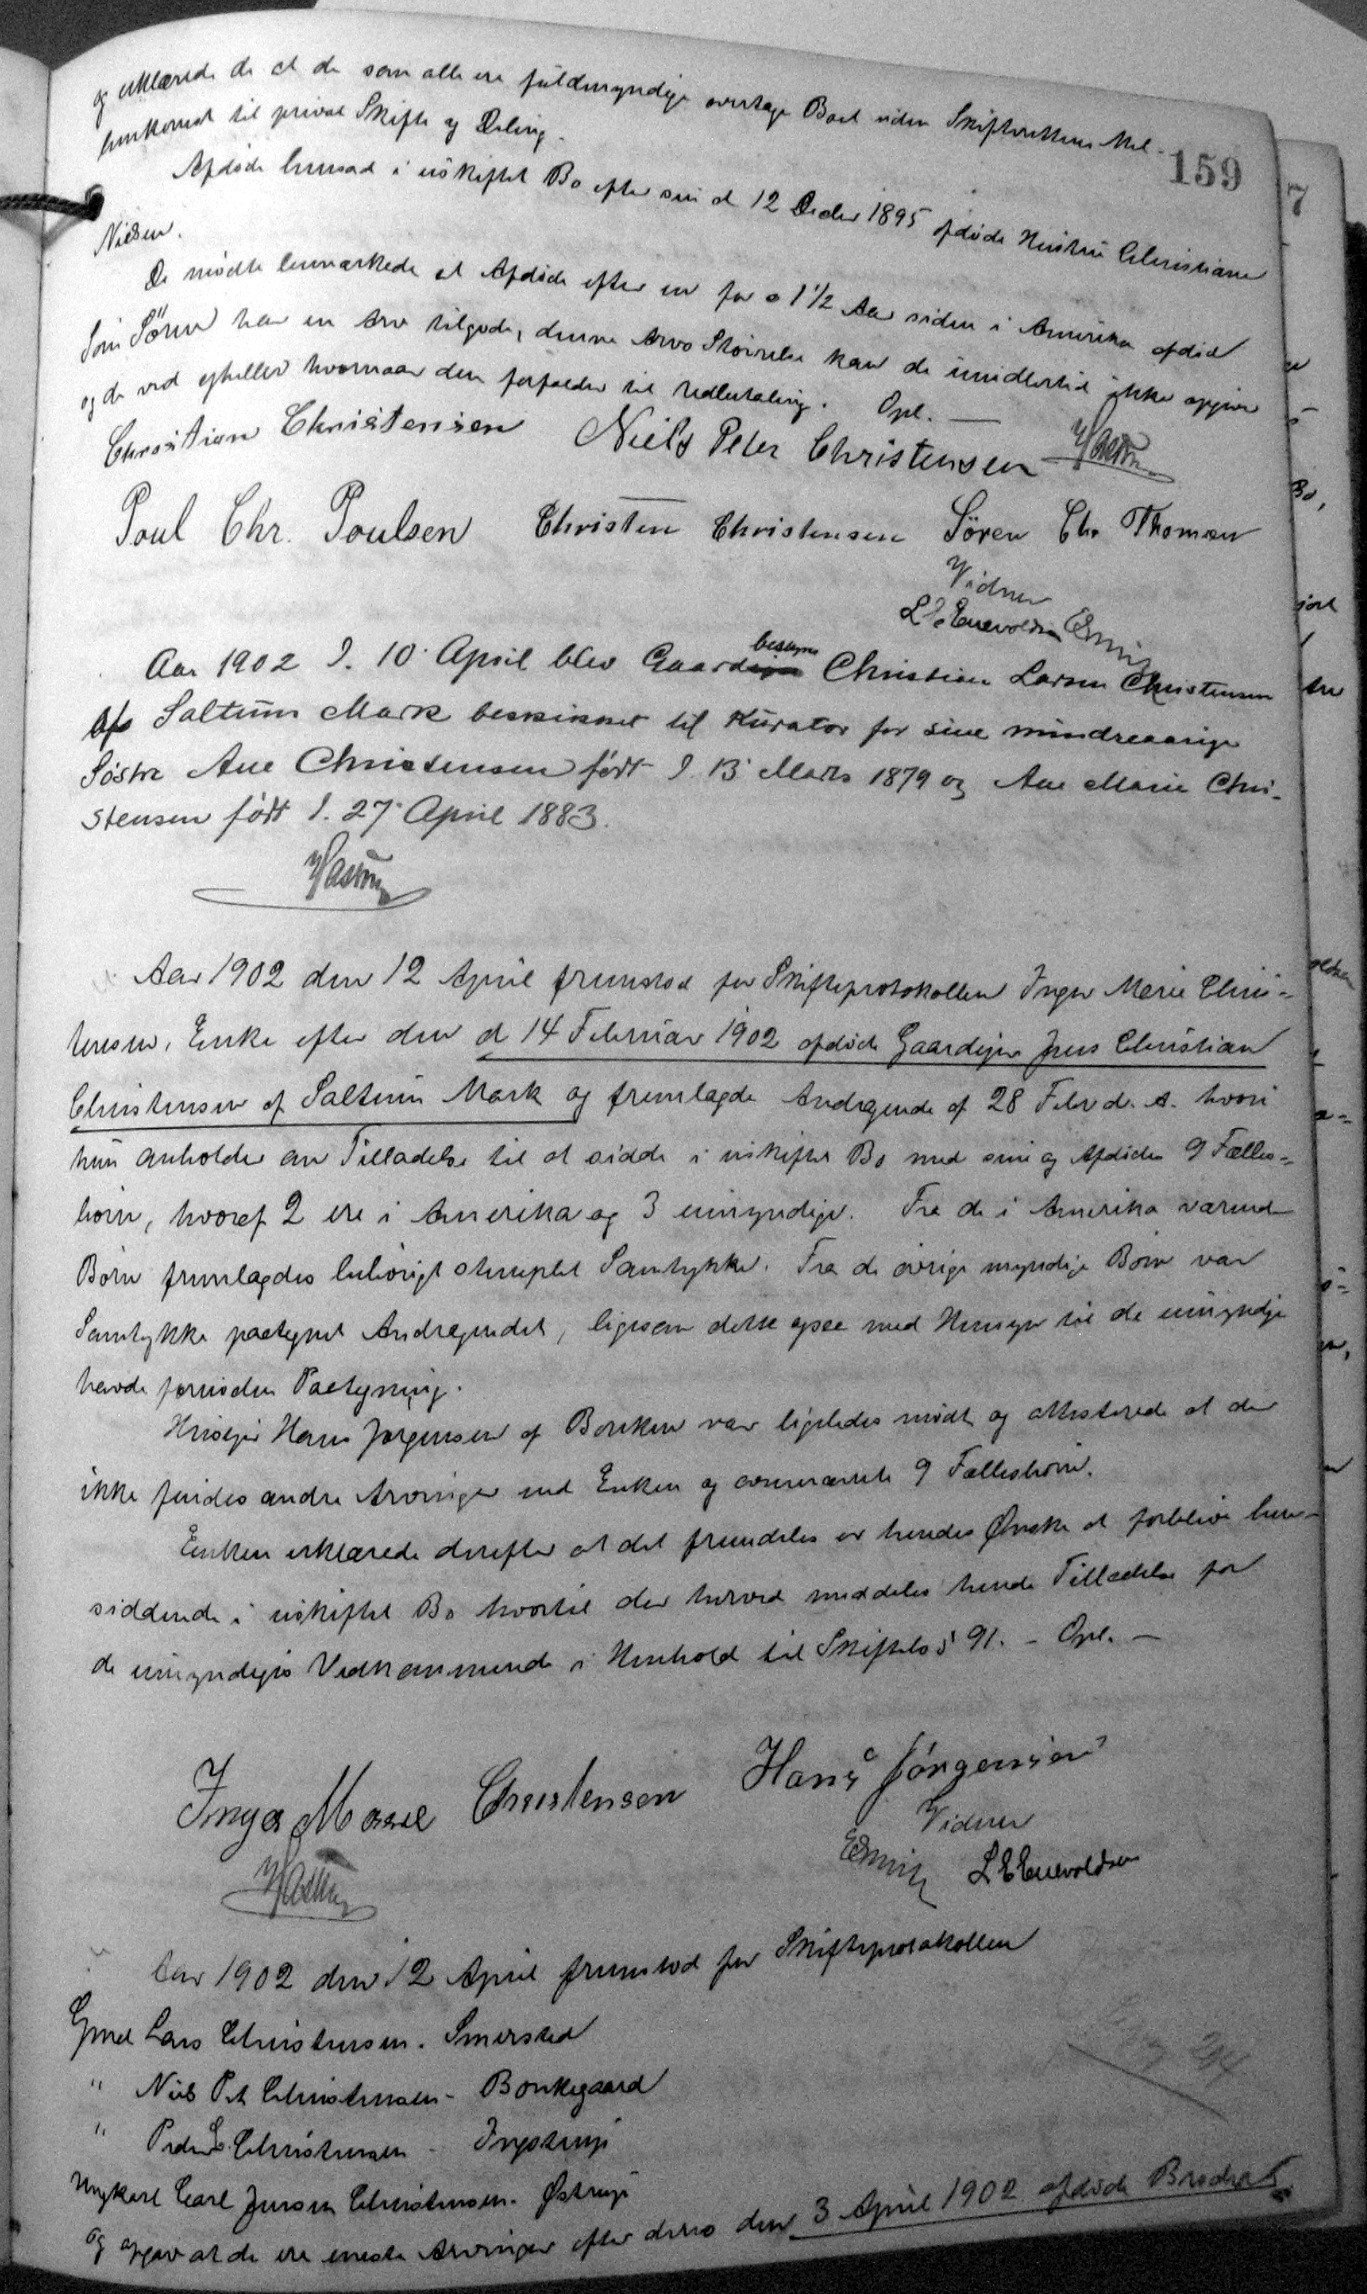 159
og erklærede de at de som alle ere fuldmyndige overtage Boet uden Skifterettens Mel-
lemkomst til privat Skifte og Deling.
Afdøde hensad i uskiftet Bo efter sin d 12 Decbr 1895 afdøde Hustru Christiane
Nielsen.
De mødte bemærkede at Afdøde efter en for c 1½ Aar siden i Amerika afdød
Søn Sören har en Arv tilgode, denne Arvs Størrelse kan de imidlertid ikke opgive
og de ved ejheller hvornaar den forfalder til Udbetaling. Opl. —
Christian Christensen Niels Peter Christensen
Poul Chr. Poulsen Christen Christensen Sören Chr Thomsen
Vidner
L E Enevoldsen
bestyrer
Aar 1902 d. 10' April blev Gaard Christian Larsen Christensen
af Saltum Mark beskikket til Kurator for sine mindreaarige
Søstre Ane Christensen født d. 13' Marts 1879 og Ane Marie Chri-
stensen født d. 27' April 1883.
Aar 1902 den 12 April fremstod for Skifteprotokollen Inger Marie Chris-
tensen, Enke efter den d 14 Februar 1902 afdøde Gaardejer Jens Christian
Christensen af Saltum Mark og fremlagde Andragende af 28 Febr d. A. hvori
hun anholder om Tilladelse til at sidde i uskiftet Bo med sine og Afdødes 9 Fælles-
børn, hvoraf 2 ere i Amerika og 3 umyndige. Fra de i Amerika værende
Børn fremlagdes behørigt stemplet Samtykke. Fra de øvrige myndige Børn var
Samtykke paategnet Andragendet, ligesom dette ogsaa med Hensyn til de umyndige
havde fornøden Paategning.
Husejer Hans Jørgensen af Bonken var ligeledes mødt og attesterede at der
ikke findes andre Arvinger end Enken og ovennævnte 9 Fællesbørn.
Enken erklærede derefter at det fremdeles er hendes Ønske at forblive hen-
siddende i uskiftet Bo hvortil der herved meddeles hende Tilladelse for
de umyndiges Vedkommende i Henhold til Skiftels § 91. - Opl. —
Inger Marie Christensen Hans Jörgensen
Vidner
L E Enevoldsen
Aar 1902 den 12 April fremstod for Skifteprotokollen
Gmd Lars Christensen. Smersted
" Niels Pet Christensen - Bonkegaard
" Peder Christensen - Ingstrup
Ungkarl Carl Jensen Christensen. Østrup
og opgav at de ere eneste Arvinger efter deres den 3 April 1902 afdøde Broder